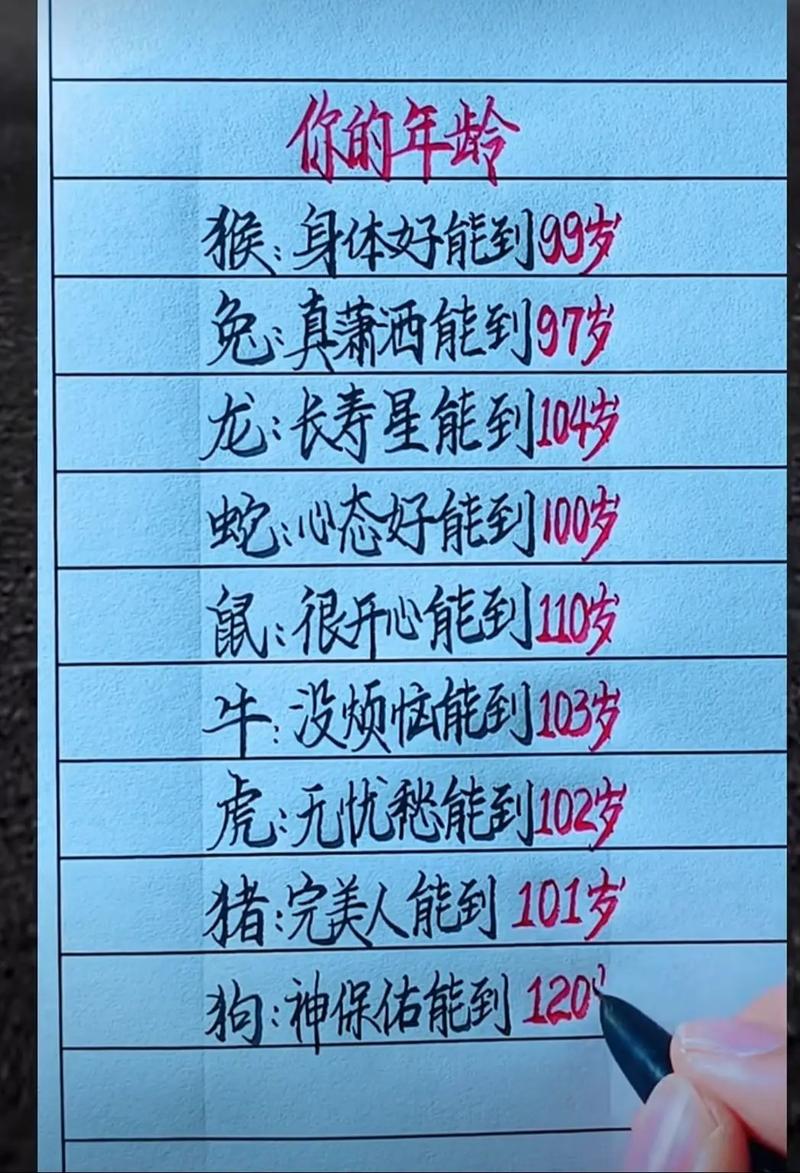 你的年龄
猴:身体好能到99岁
兔:真潇洒能到97岁
龙:长寿星能到104岁
蛇:心态好能到100岁
鼠:很开心能到110岁
牛:没烦恼能到103岁
虎:无忧愁能到102岁
猪:完美人能到 101岁
狗:神保佑能到 120